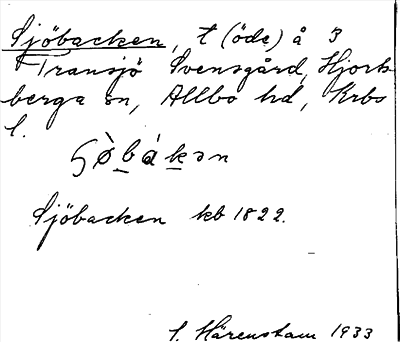 Sjöbacken, t (öde) å 3
Transjö Svensgård, Hjorts-
berga sn, Allbo hd, Krbs
l.
ɧø̀bákən
Sjöbacken kb 1822.
S. Härenstam 1933